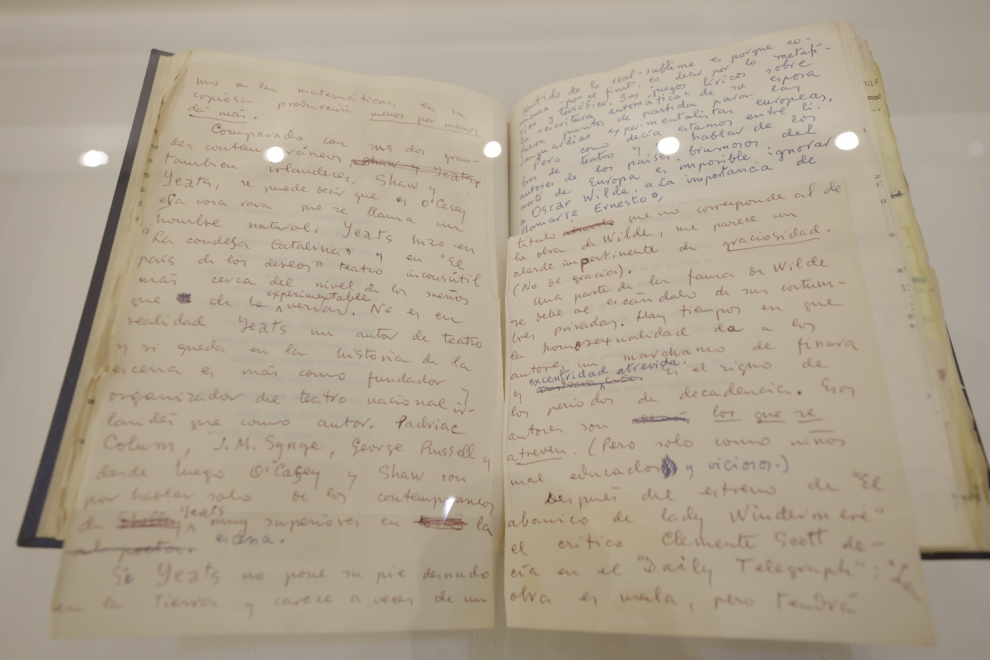 mo en las matemáticas, en su
copiosa producción menos por menos
da más.
Comparado con sus dos gran-
des contemporáneos Shaw y Yeats,
tambien irlandeses, Shaw y O'Casey
Yeats, se puede decir que es
esa cosa rara que se llama un
hombre natural. Yeats hizo en
"La condesa Catalina" y en "El
pais de los deseos" teatro inconsútil
más cerca del nivel de los sueños
que de la experimentable verdad. No es en
realidad Yeats un autor de teatro
y si queda en la historia de la
escena es más como fundador y
organizador del teatro nacional ir-
landés que como autor. Padriac
Column, J.M. Synge, George Russell y
desde luego O'Casey y Shaw son
por hablar solo de los contemporaneos
de Shelley Yeats muy superiores en la
al poeta. escena.
Si Yeats no pone su pie desnudo
en la tierra y carece a veces de un
sentido de lo real-sublime es porque co-
mienza "por el final", es decir por lo metafí-
sico y teosófico. Sus juegos líricos sobre
la "escritura automática" de su esposa
fueron punto de partida para las
vanguardias experimentalistas europeas.
Pero como decía estamos entre li-
bros de teatro y al hablar de los
autores de los paises brumosos del
norte de Europa es imposible ignorar
a Oscar Wilde. "La importancia de
llamarse Ernesto",
título que no corresponde al de
la obra de Wilde, me parece un
alarde impertinente de graciosidad.
(No de gracia).
Una parte de la fama de Wilde
se debe al escándalo de sus costum-
bres privadas. Hay tiempos en que
la homosexualidad da a los
autores un marchamo de finura
y excentricidad atrevida. es el signo de
los periodos de decadencia. Esos
autores son los que se
atreven. (Pero solo como niños
mal educados y viciosos.)
Después del estreno de "El
abanico de lady Windermere"
el crítico Clemente Scott de-
cía en el "Daily Telegraph": "La
obra es mala, pero tendrá